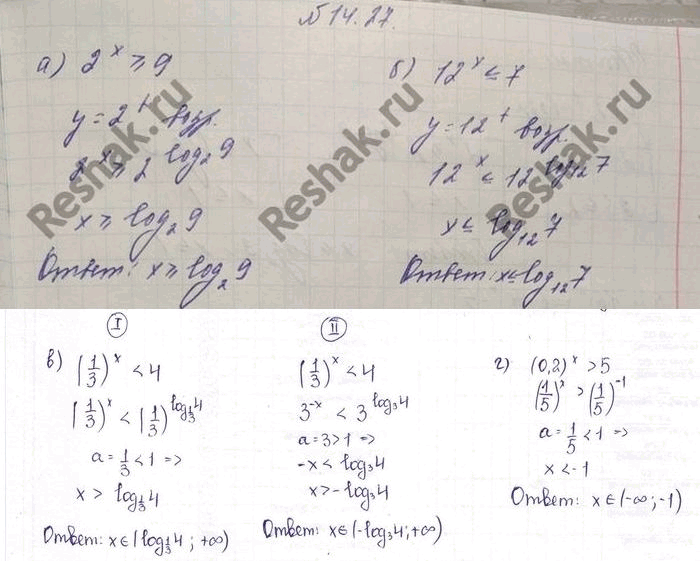 №14.27.
а) 2^x ≥ 9
y = 2^t возр.
2^x ≥ 2^{log_2 9}
x ≥ log_2 9
Ответ: x ≥ log_2 9
б) 12^x ≤ 7
y = 12^t возр.
12^x ≤ 12^{log_{12} 7}
x ≤ log_{12} 7
Ответ: x ≤ log_{12} 7
Reshak.ru
Reshak.ru
Reshak.ru
I
в) (1/3)^x < 4
(1/3)^x < (1/3)^{log_{1/3} 4}
a = 1/3 < 1 =>
x > log_{1/3} 4
Ответ: x ∈ (log_{1/3} 4; +∞)
II
(1/3)^x < 4
3^{-x} < 3^{log_3 4}
a = 3 > 1 =>
-x < log_3 4
x > -log_3 4
Ответ: x ∈ (-log_3 4; +∞)
г) (0,2)^x > 5
(1/5)^x > (1/5)^{-1}
a = 1/5 < 1 =>
x < -1
Ответ: x ∈ (-∞; -1)